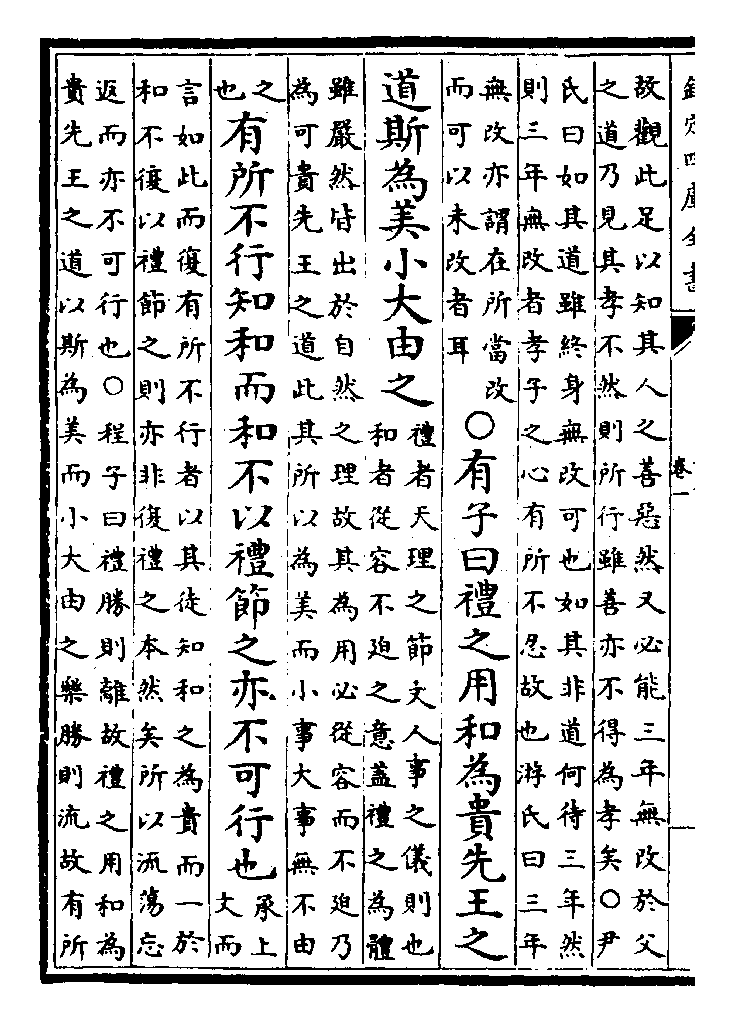 欽定四庫全書
卷一
故觀此足以知其人之善惡然又必能三年無改於父
之道乃見其孝不然則所行雖善亦不得為孝矣○尹
氏曰如其道雖終身無改可也如其非道何待三年然
則三年無改者孝子之心有所不忍故也游氏曰三年
無改亦謂在所當改
而可以未改者耳
○有子曰禮之用和為貴先王之
道斯為美小大由之
禮者天理之節文人事之儀則也
和者從容不迫之意蓋禮之為體
雖嚴然皆出於自然之理故其為用必從容而不迫乃
為可貴先王之道此其所以為美而小事大事無不由
之
也
有所不行知和而和不以禮節之亦不可行也
承上
文而
言如此而復有所不行者以其徒知和之為貴而一於
和不復以禮節之則亦非復禮之本然矣所以流蕩忘
返而亦不可行也○程子曰禮勝則離故禮之用和為
貴先王之道以斯為美而小大由之樂勝則流故有所